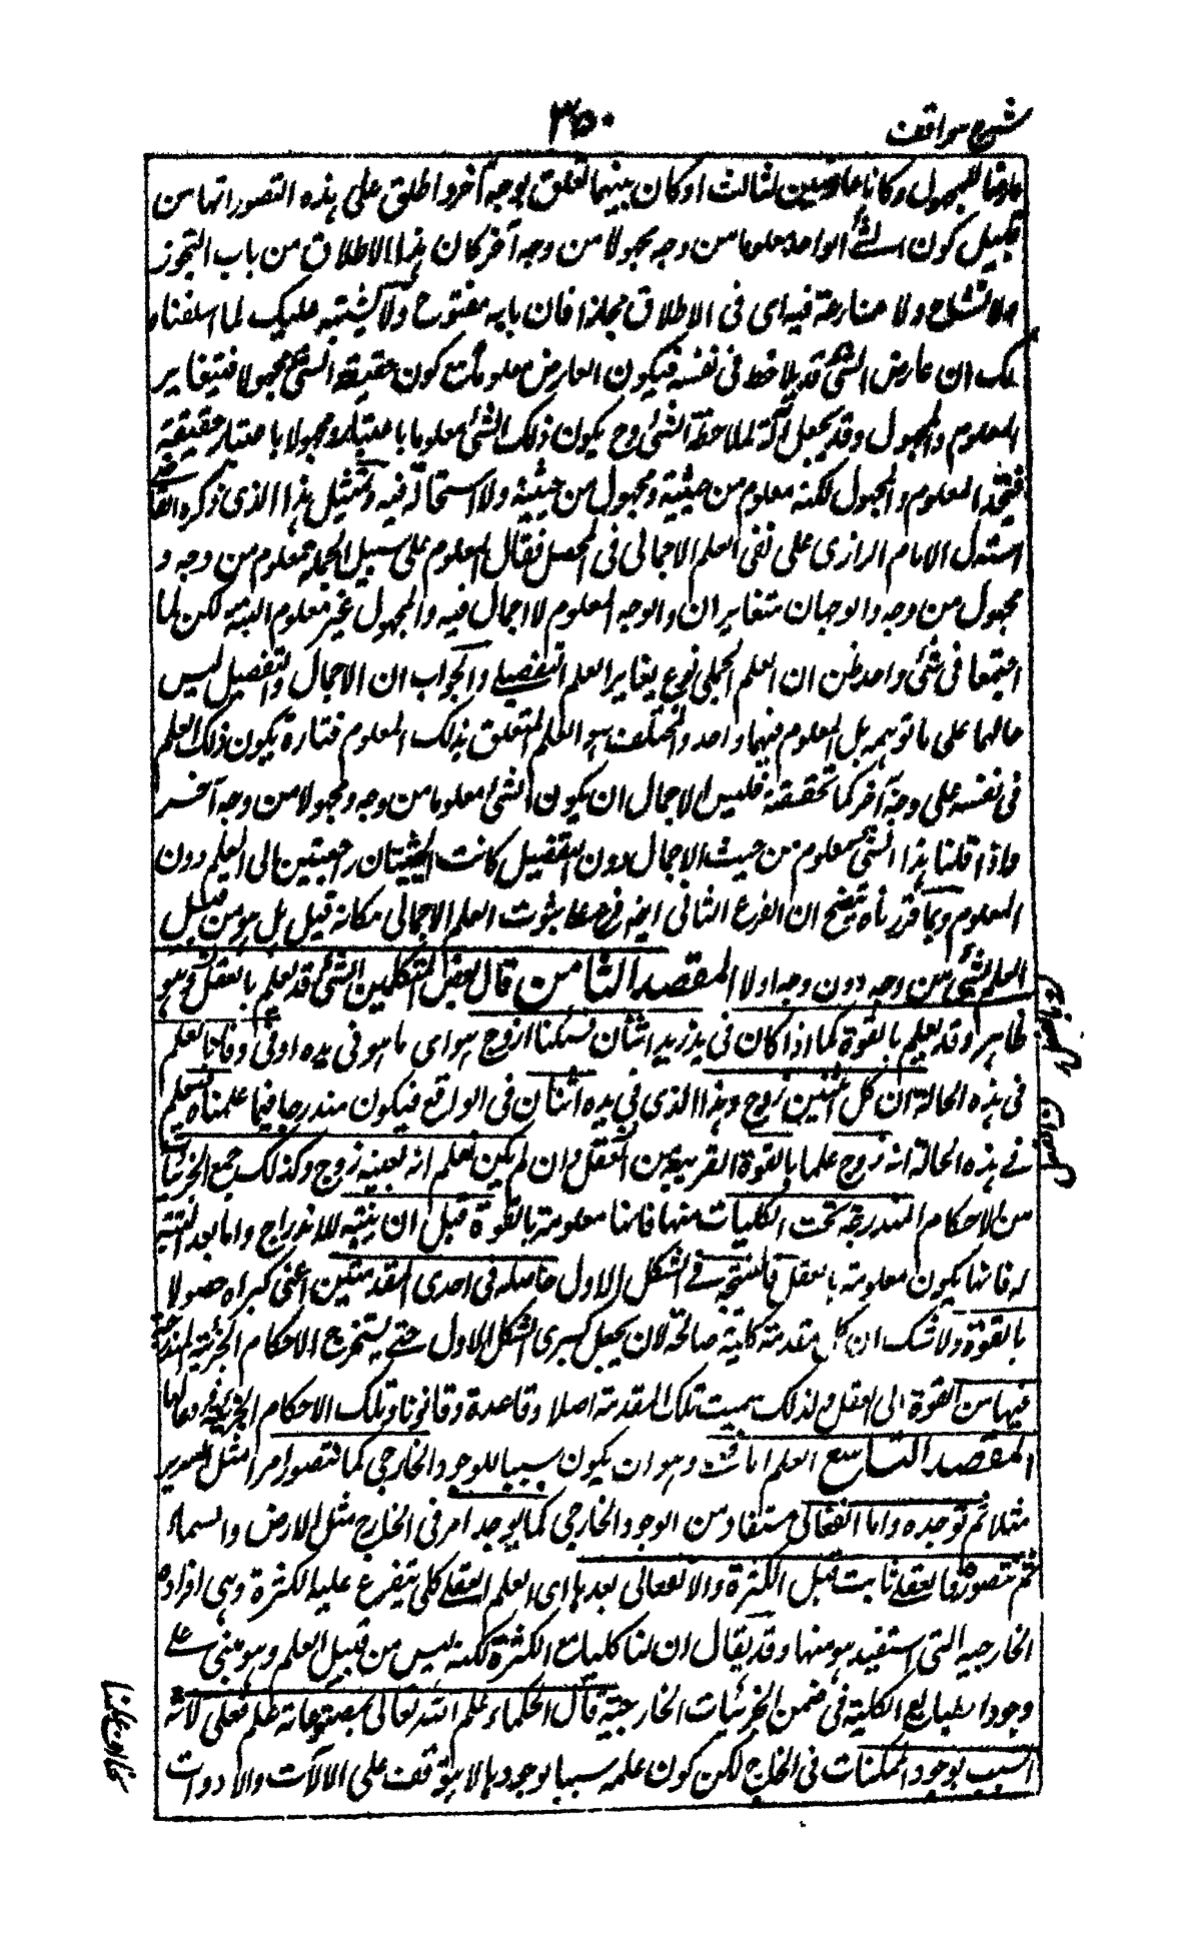 شرح مواقف
٣٥٠
عارضا للمجهول وكانا عارضين لثالث او كان بينهما تعلق بوجه آخر واطلق على هذه التصورات انها من
قبيل كون الشئ الواحد معلوما من وجه مجهولا من وجه آخر كان هذا الاطلاق من باب التجوز
ولا نشاح ولا منازعة فيه اى فى الاطلاق مجازا فان بابه مفتوح ولا يشتبه عليك لما اسلفناه
لك ان عارض الشئ قد يلاحظ فى نفسه فيكون العارض معلوما مع كون حقيقة الشئ مجهولا فيتغاير
المعلوم والمجهول وقد يجعل آلة لملاحظة الشئ وح يكون ذلك الشئ معلوما باعتبار ومجهولا باعتبار حقيقته
فيتحد المعلوم والمجهول لكنه معلوم من حيثية ومجهول من حيثية ولا استحالة فيه وبمثل هذا الذى ذكره القاضى
استدل الامام الرازى على نفى العلم الاجمالى فى المحصل فقال المعلوم على سبيل الجملة معلوم من وجه و
مجهول من وجه والوجهان متغايران والوجه المعلوم لا اجمال فيه والمجهول غير معلوم البتة لكن لما
اجتمعا فى شئ واحد ظن ان العلم الجملى نوع يغاير العلم التفصيلى والجواب ان الاجمال والتفصيل ليس
حالهما على ما توهمه بل المعلوم فيهما واحد والمختلف هو العلم المتعلق بذلك المعلوم فتارة يكون ذلك العلم
فى نفسه على وجه آخر كما تحققته فليس الاجمال ان يكون الشئ معلوما من وجه ومجهولا من وجه آخر
واذا قلنا هذا الشئ معلوم من حيث الاجمال دون التفصيل كانت الحيثيتان راجعتين الى العلم دون
المعلوم وبما قررناه يتضح ان الفرع الثانى ايضا فرع على ثبوت العلم الاجمالى مكانه قيل بل هو من قبيل
العلم بالشئ من وجه دون وجه اولا المقصد الثامن قال بعض المتكلمين الشئ قد يعلم بالفعل وهو
ظاهر وقد يعلم بالقوة كما اذا كان فى يد زيد اثنان فسألنا ازوج هو اى ما هو فى يده او فرد فانا نعلم
فى هذه الحالة ان كل اثنين زوج وهذا الذى فى يده اثنان فى الواقع فيكون مندرجا فيما علمناه فنعلم
فى هذه الحالة انه زوج علما بالقوة القريبة من الفعل وان لم يكن نعلم انه بعينه زوج وكذلك جميع الجزئيات
من الاحكام المندرجة تحت الكليات منها فانها معلومة بالقوة قبل ان يتنبه للاندراج واما بعد التنبه
له فانها يكون معلومة بالفعل فالنتيجة فى الشكل الاول حاصلة فى احدى المقدمتين اعنى كبراه حصولا
بالقوة ولا شك ان كل مقدمة كلية صالحة لان يجعل كبرى الشكل الاول حتى يستخرج الاحكام الجزئية المندرجة
فيها من القوة الى الفعل ولذلك سميت تلك المقدمة اصلا وقاعدة وقانونا وتلك الاحكام الجزئية فروعا لها
المقصد التاسع العلم اما فعلى وهو ان يكون سببا للوجود الخارجى كما نتصور امرا مثل السرير
مثلا ثم نوجده واما انفعالى مستفاد من الوجود الخارجى كما يوجد امر فى الخارج مثل الارض والسماء
ثم نتصوره فالفعلى ثابت قبل الكثرة والانفعالى بعدها اى العلم الفعلى كلى يتفرع عليه الكثرة وهى افراده
الخارجية التى استفيد هو منها وقد يقال ان لنا كليا مع الكثرة لكنه ليس من قبيل العلم وهو مبنى على
وجود الطبايع الكلية فى ضمن الجزئيات الخارجية قال الحكماء علم الله تعالى بمصنوعاته علم فعلى لانه
السبب لوجود الممكنات فى الخارج لكن كون علمه سببا لوجودها لا يتوقف على الآلات والادوات